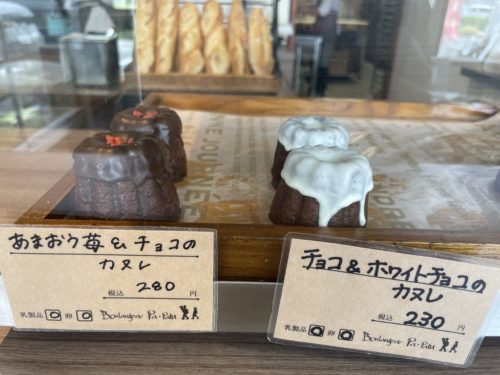 あまおう苺&チョコの
カヌレ
税込 280 円
乳製品 卵
チョコ&ホワイトチョコの
カヌレ
税込 230 円
乳製品 卵